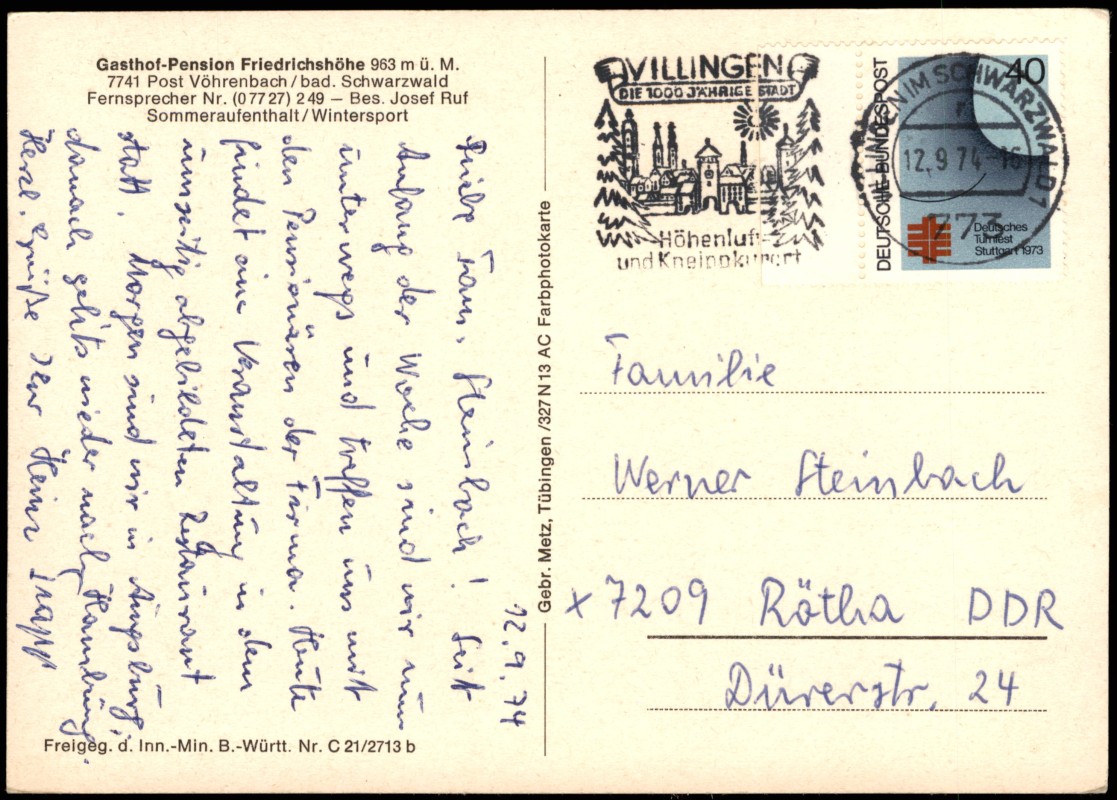 Gasthof-Pension Friedrichshöhe 963 m ü. M.
7741 Post Vöhrenbach / bad. Schwarzwald
Fernsprecher Nr. (07727) 249 — Bes. Josef Ruf
Sommeraufenthalt / Wintersport
12.9.74
Liebe Fam. Steinbach! Seit
Anfang der Woche sind wir nun
unterwegs und treffen uns mit
den Pensionären der Firma. Heute
findet eine Veranstaltung in dem
umseitig abgebildeten Restaurant
statt. Morgen sind wir in Augsburg,
danach gehts wieder nach Hamburg.
Herzl. Grüße Ihr Heinz Trapp
Freigeg. d. Inn.-Min. B.-Württ. Nr. C 21/2713 b
Gebr. Metz, Tübingen /327 N 13 AC Farbphotokarte
VILLINGEN
DIE 1000 JÄHRIGE STADT
Höhenluft-
und Kneippkurort
DEUTSCHE BUNDESPOST
40
Deutsches
Turnfest
Stuttgart 1973
EN IM SCHWARZWALD 1
12.9.74-16
773
Familie
Werner Steinbach
x 7209 Rötha DDR
Dürerstr. 24